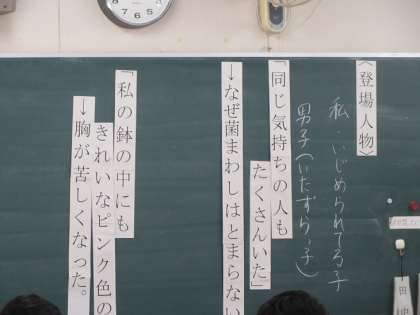 〈登場人物〉
私・いじめられてる子
男子(いたずらっ子)
「同じ気持ちの人も
たくさんいた」
→なぜ菌まわしはとまらない
「私の鉢の中にも
きれいなピンク色の
→胸が苦しくなった。
田中